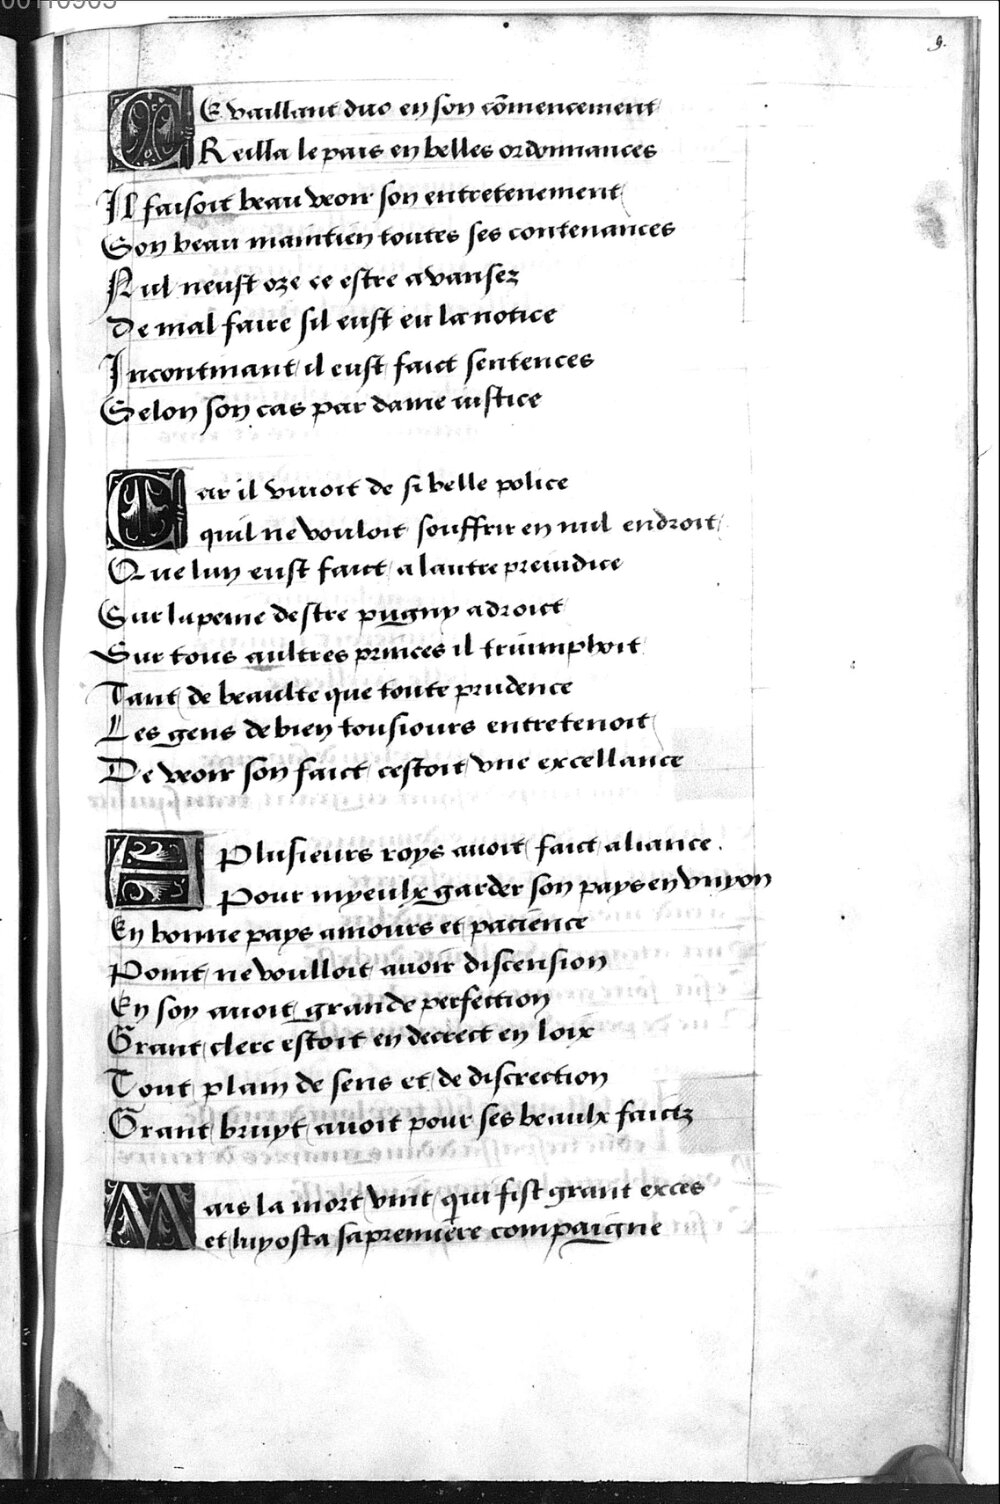 00110905
9.
CE vaillant duc en son cõmencement
Reilla le pais en belles ordonnances
Il faisoit beau veoir son entretenement
Son beau maintien toutes ses contenances
Nul neust oze ce estre avansez
De mal faire sil eust eu la notice
Incontinant il eust faict sentences
Selon son cas par dame iustice
Car il vivoit de si belle police
quil ne vouloit souffrir en nul endroit
Que lun eust faict a lautre preiudice
Sur la peine destre pugny a droict
Sur tous aultres princes il triumphoit
Tant de beaulte que toute prudence
Les gens de bien tousiours entretenoit
De veoir son faict cestoit une excellance
A Plusieurs roys avoit faict aliance.
Pour myeulx garder son pays en vnyon
En bonne pays amours et pacience
Point ne voulloit avoir discension
En soy avoit grande perfection
Grant clerc estoit en decrect en loix
Tout plain de sens et de discrection
Grant bruyt avoit pour ses beaulx faictz
Mais la mort vint qui fist grant exces
et luy osta sa premiere compaigne